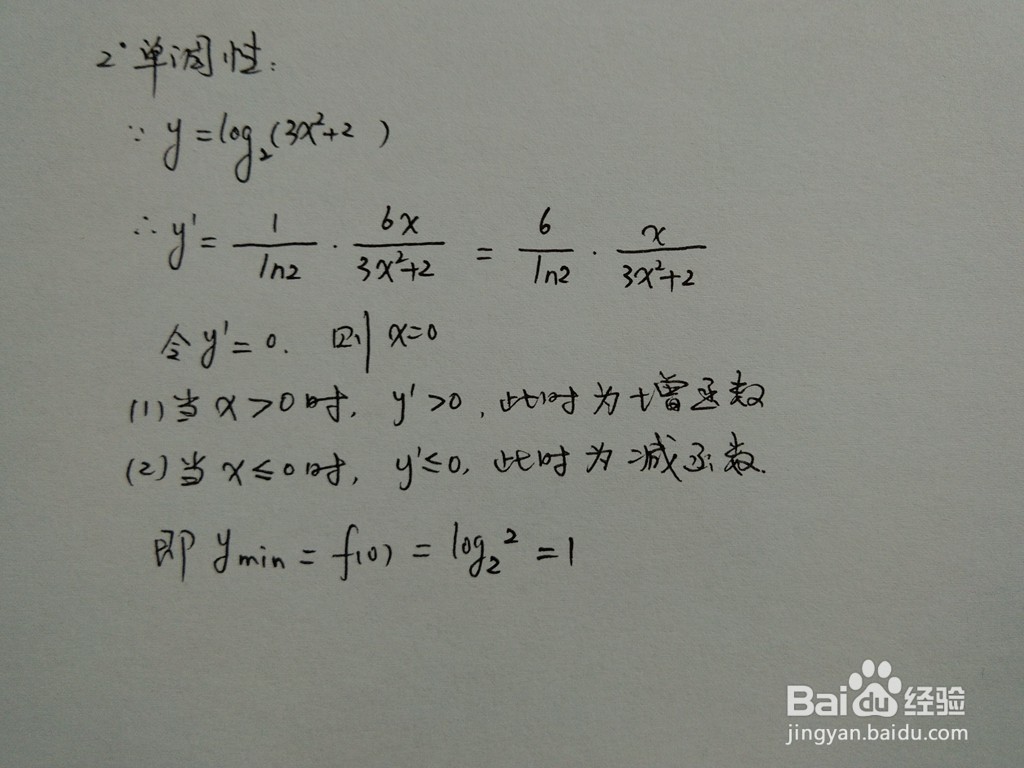 2°单调性:
∵ y=log₂(3x²+2 )
∴ y'= 1/ln2 · 6x/3x²+2 = 6/ln2 · x/3x²+2
令y'=0. 则 x=0
(1)当 x>0时, y'>0, 此时为增函数
(2)当 x≤0时, y'≤0, 此时为减函数.
即 ymin = f(0) = log₂² = 1
Bai du 经验
jingyan.baidu.com